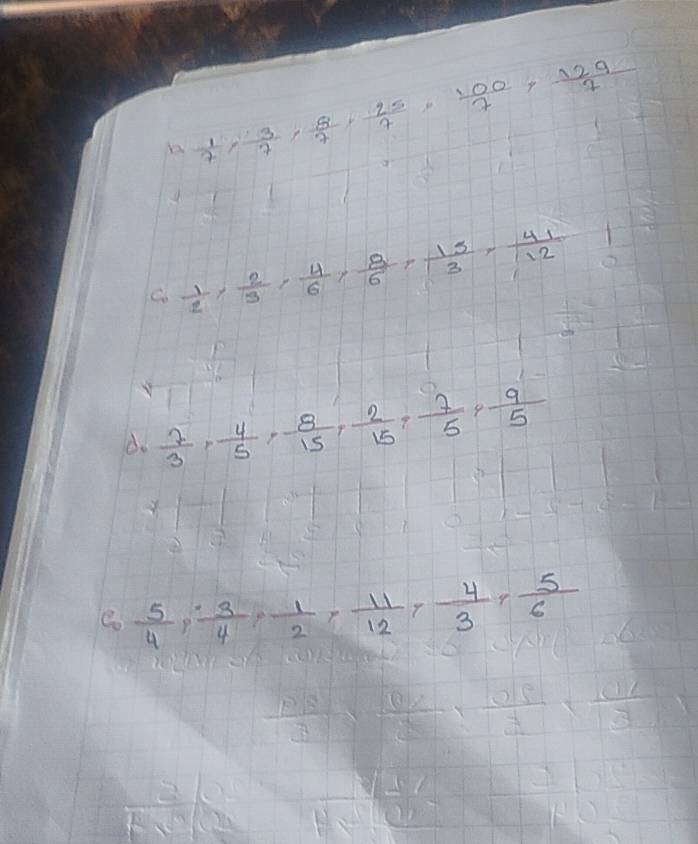 1/7, 3/7, 8/7, 25/7, 100/7, 129/7
c. 1/2, 2/3, 4/6, 8/6, 15/3, 41/12
d. 7/3, 4/5, 8/15, 2/15, 7/5, 9/5
e. 5/4, 3/4, 1/2, 11/12, 4/3, 5/6